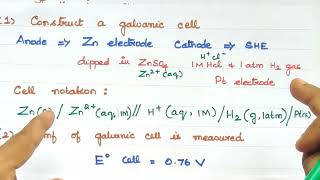 1) Construct a galvanic cell
Anode ⇒ Zn electrode Cathode ⇒ SHE
H⁺Cl⁻
dipped in ZnSO₄ 1M HCl & 1 atm H₂ gas
Zn²⁺(aq) Pt electrode
Cell notation :
Zn( / Zn²⁺(aq,1M) // H⁺(aq, 1M) / H₂(g,1atm) / Pt(s)
2) mf of galvanic cell is measured
E° cell = 0.76 V